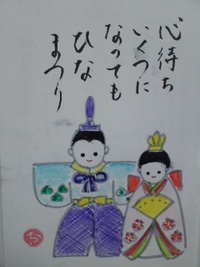 心待ち
いくつに
なっても
ひな
まつり